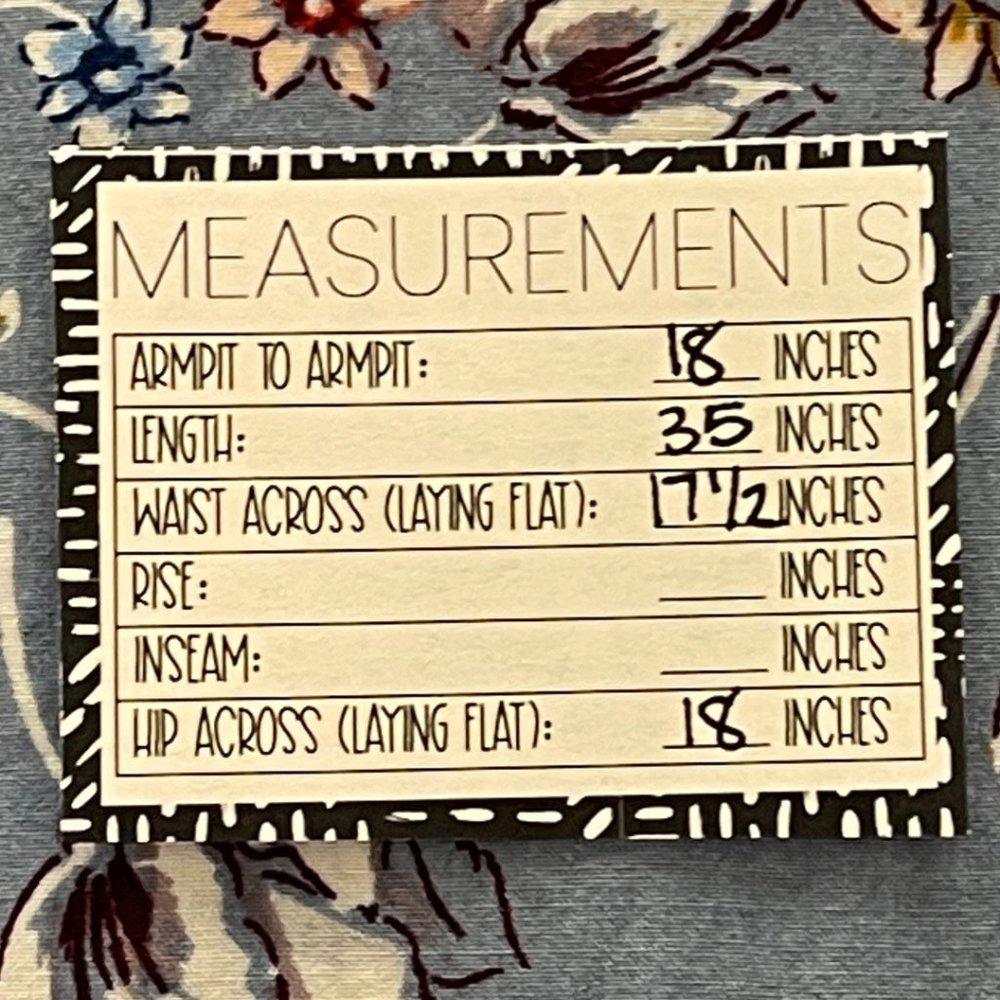 MEASUREMENTS
ARMPIT TO ARMPIT: 18 INCHES
LENGTH: 35 INCHES
WAIST ACROSS (LAYING FLAT): 17 1/2 INCHES
RISE: ____ INCHES
INSEAM: ____ INCHES
HIP ACROSS (LAYING FLAT): 18 INCHES